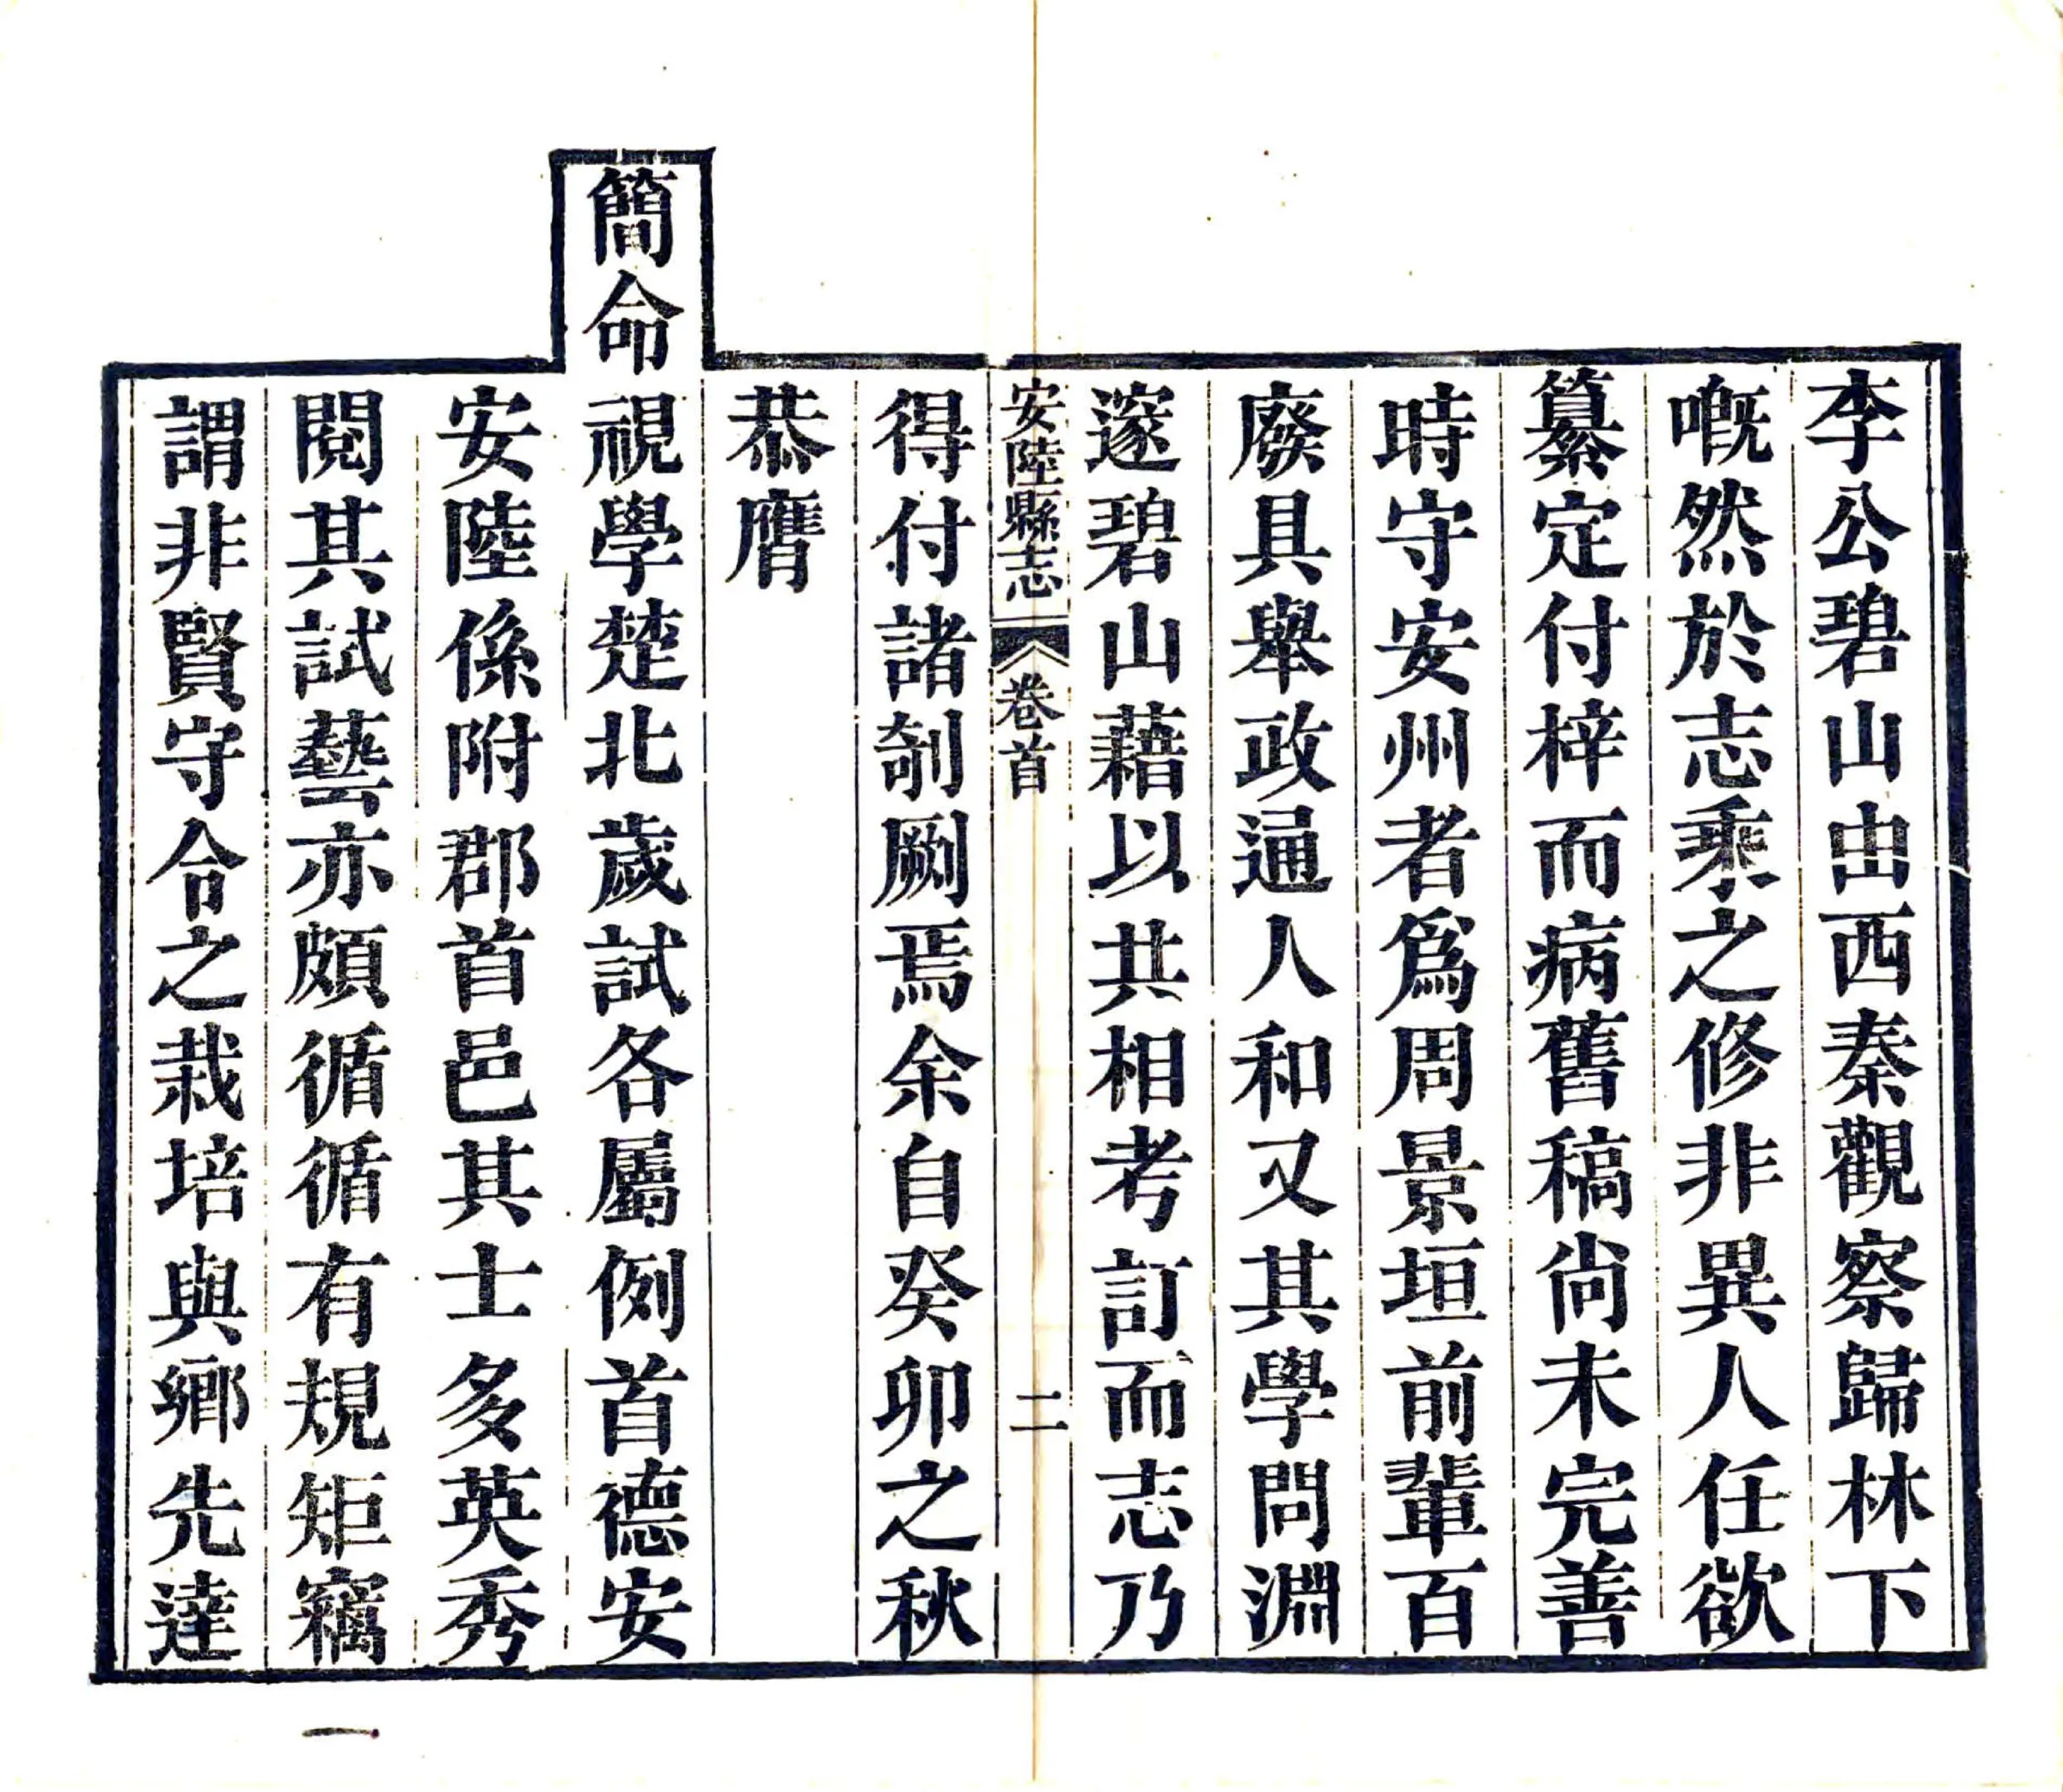 李公碧山由西秦觀察歸林下
嘅然於志乘之修非異人任欲
纂定付梓而病舊稿尚未完善
時守安州者爲周景垣前輩百
廢具舉政通人和又其學問淵
邃碧山藉以共相考訂而志乃
安陸縣志 卷首 二
得付諸剞劂焉余自癸卯之秋
恭膺
簡命視學楚北歲試各屬例首德安
安陸係附郡首邑其士多英秀
閱其試藝亦頗循循有規矩竊
謂非賢守令之栽培與鄉先達
一